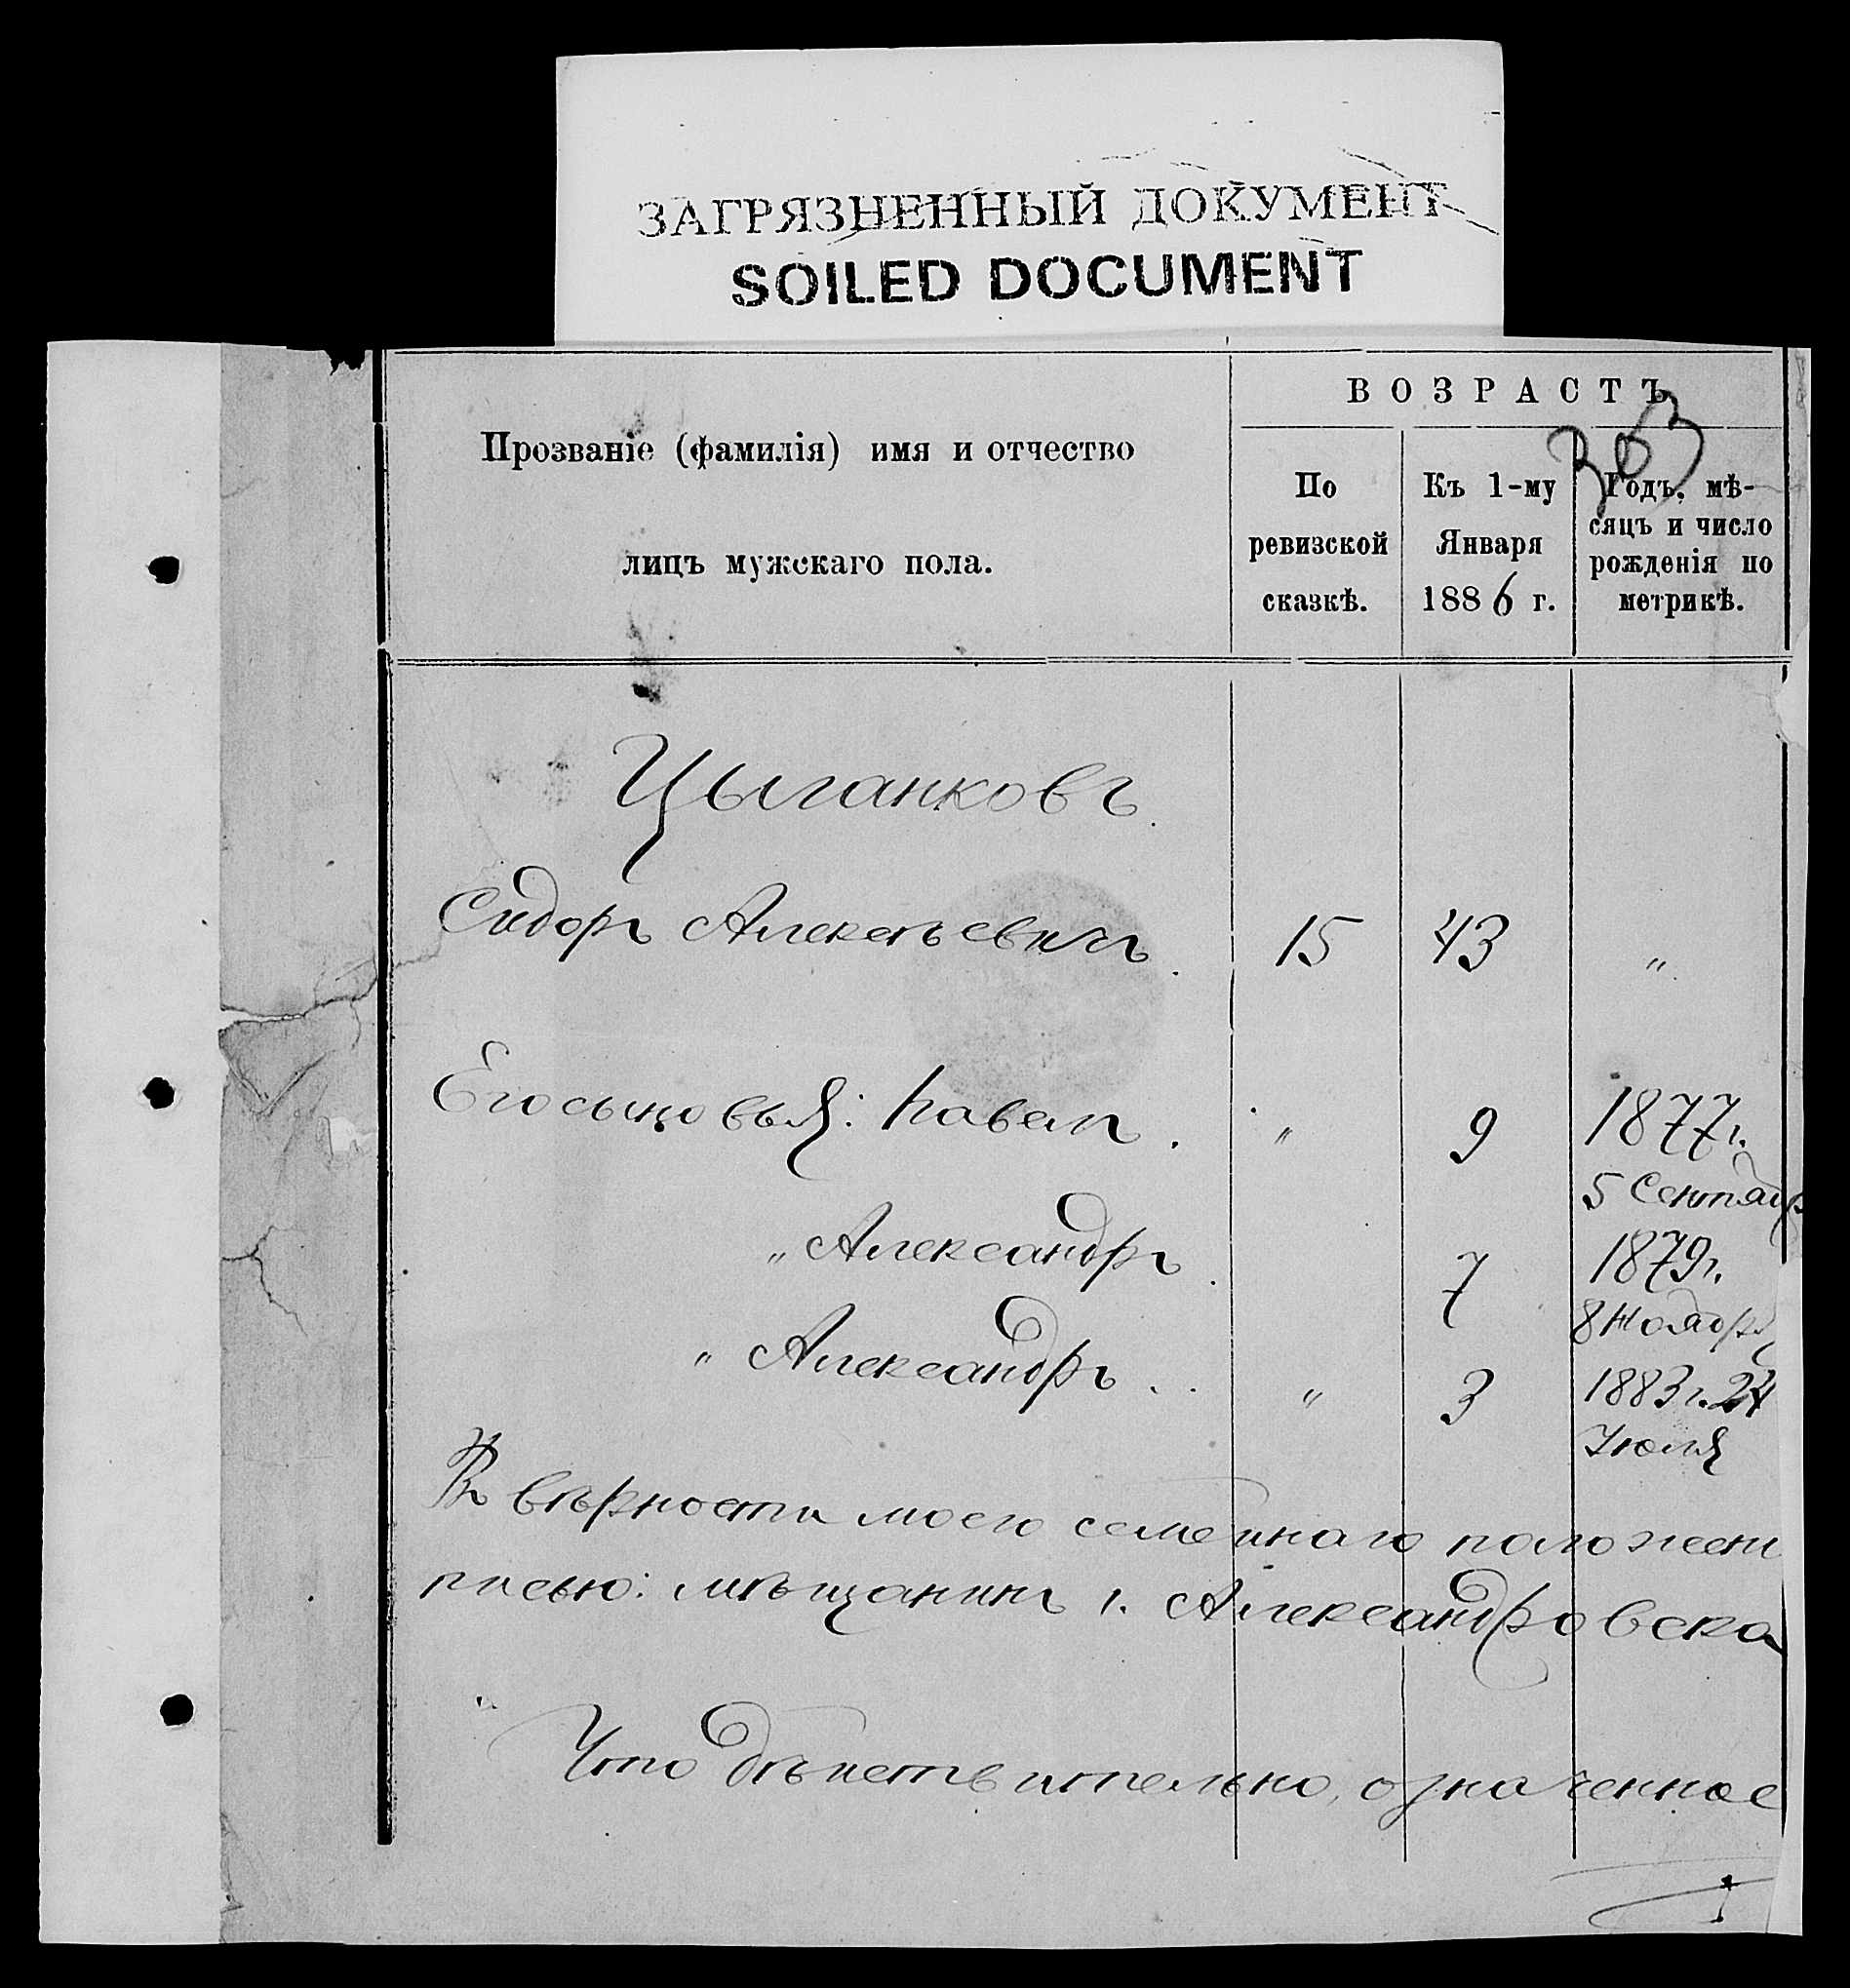 ЗАГРЯЗНЕННЫЙ ДОКУМЕНТ
SOILED DOCUMENT
ВОЗРАСТЪ
303
Прозваніе (фамилія) имя и отчество
лицъ мужскаго пола.
По
ревизской
сказкѣ.
Къ 1-му
Января
1886 г.
Годъ, мѣ-
сяцъ и число
рожденія по
метрикѣ.
Цыганковъ.
Сидоръ Алексѣевичъ. 15 43 "
Его сыновья: Павелъ. " 9 1877 г.
5 Сентябр
" Александръ. 7 1879 г.
8 Ноября
" Александръ.. " 3 1883 г. 24
Июля
Въ вѣрности моего семейнаго положени
писью: мѣщанинъ г. Александровска
Что дѣйствительно, означенное